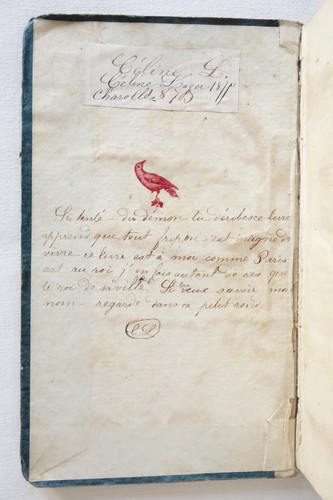 Céline L.
Céline Loger 18
Charolles 8
Si tenté du démon tu dérobes ce livre
apprend que tout fripon est indigne de
vivre ce livre est à moi comme Paris
est au roi j'en fais autant de cas que
le roi de sa ville Si tu veux savoir mon
nom regarde dans ce petit rond
CL